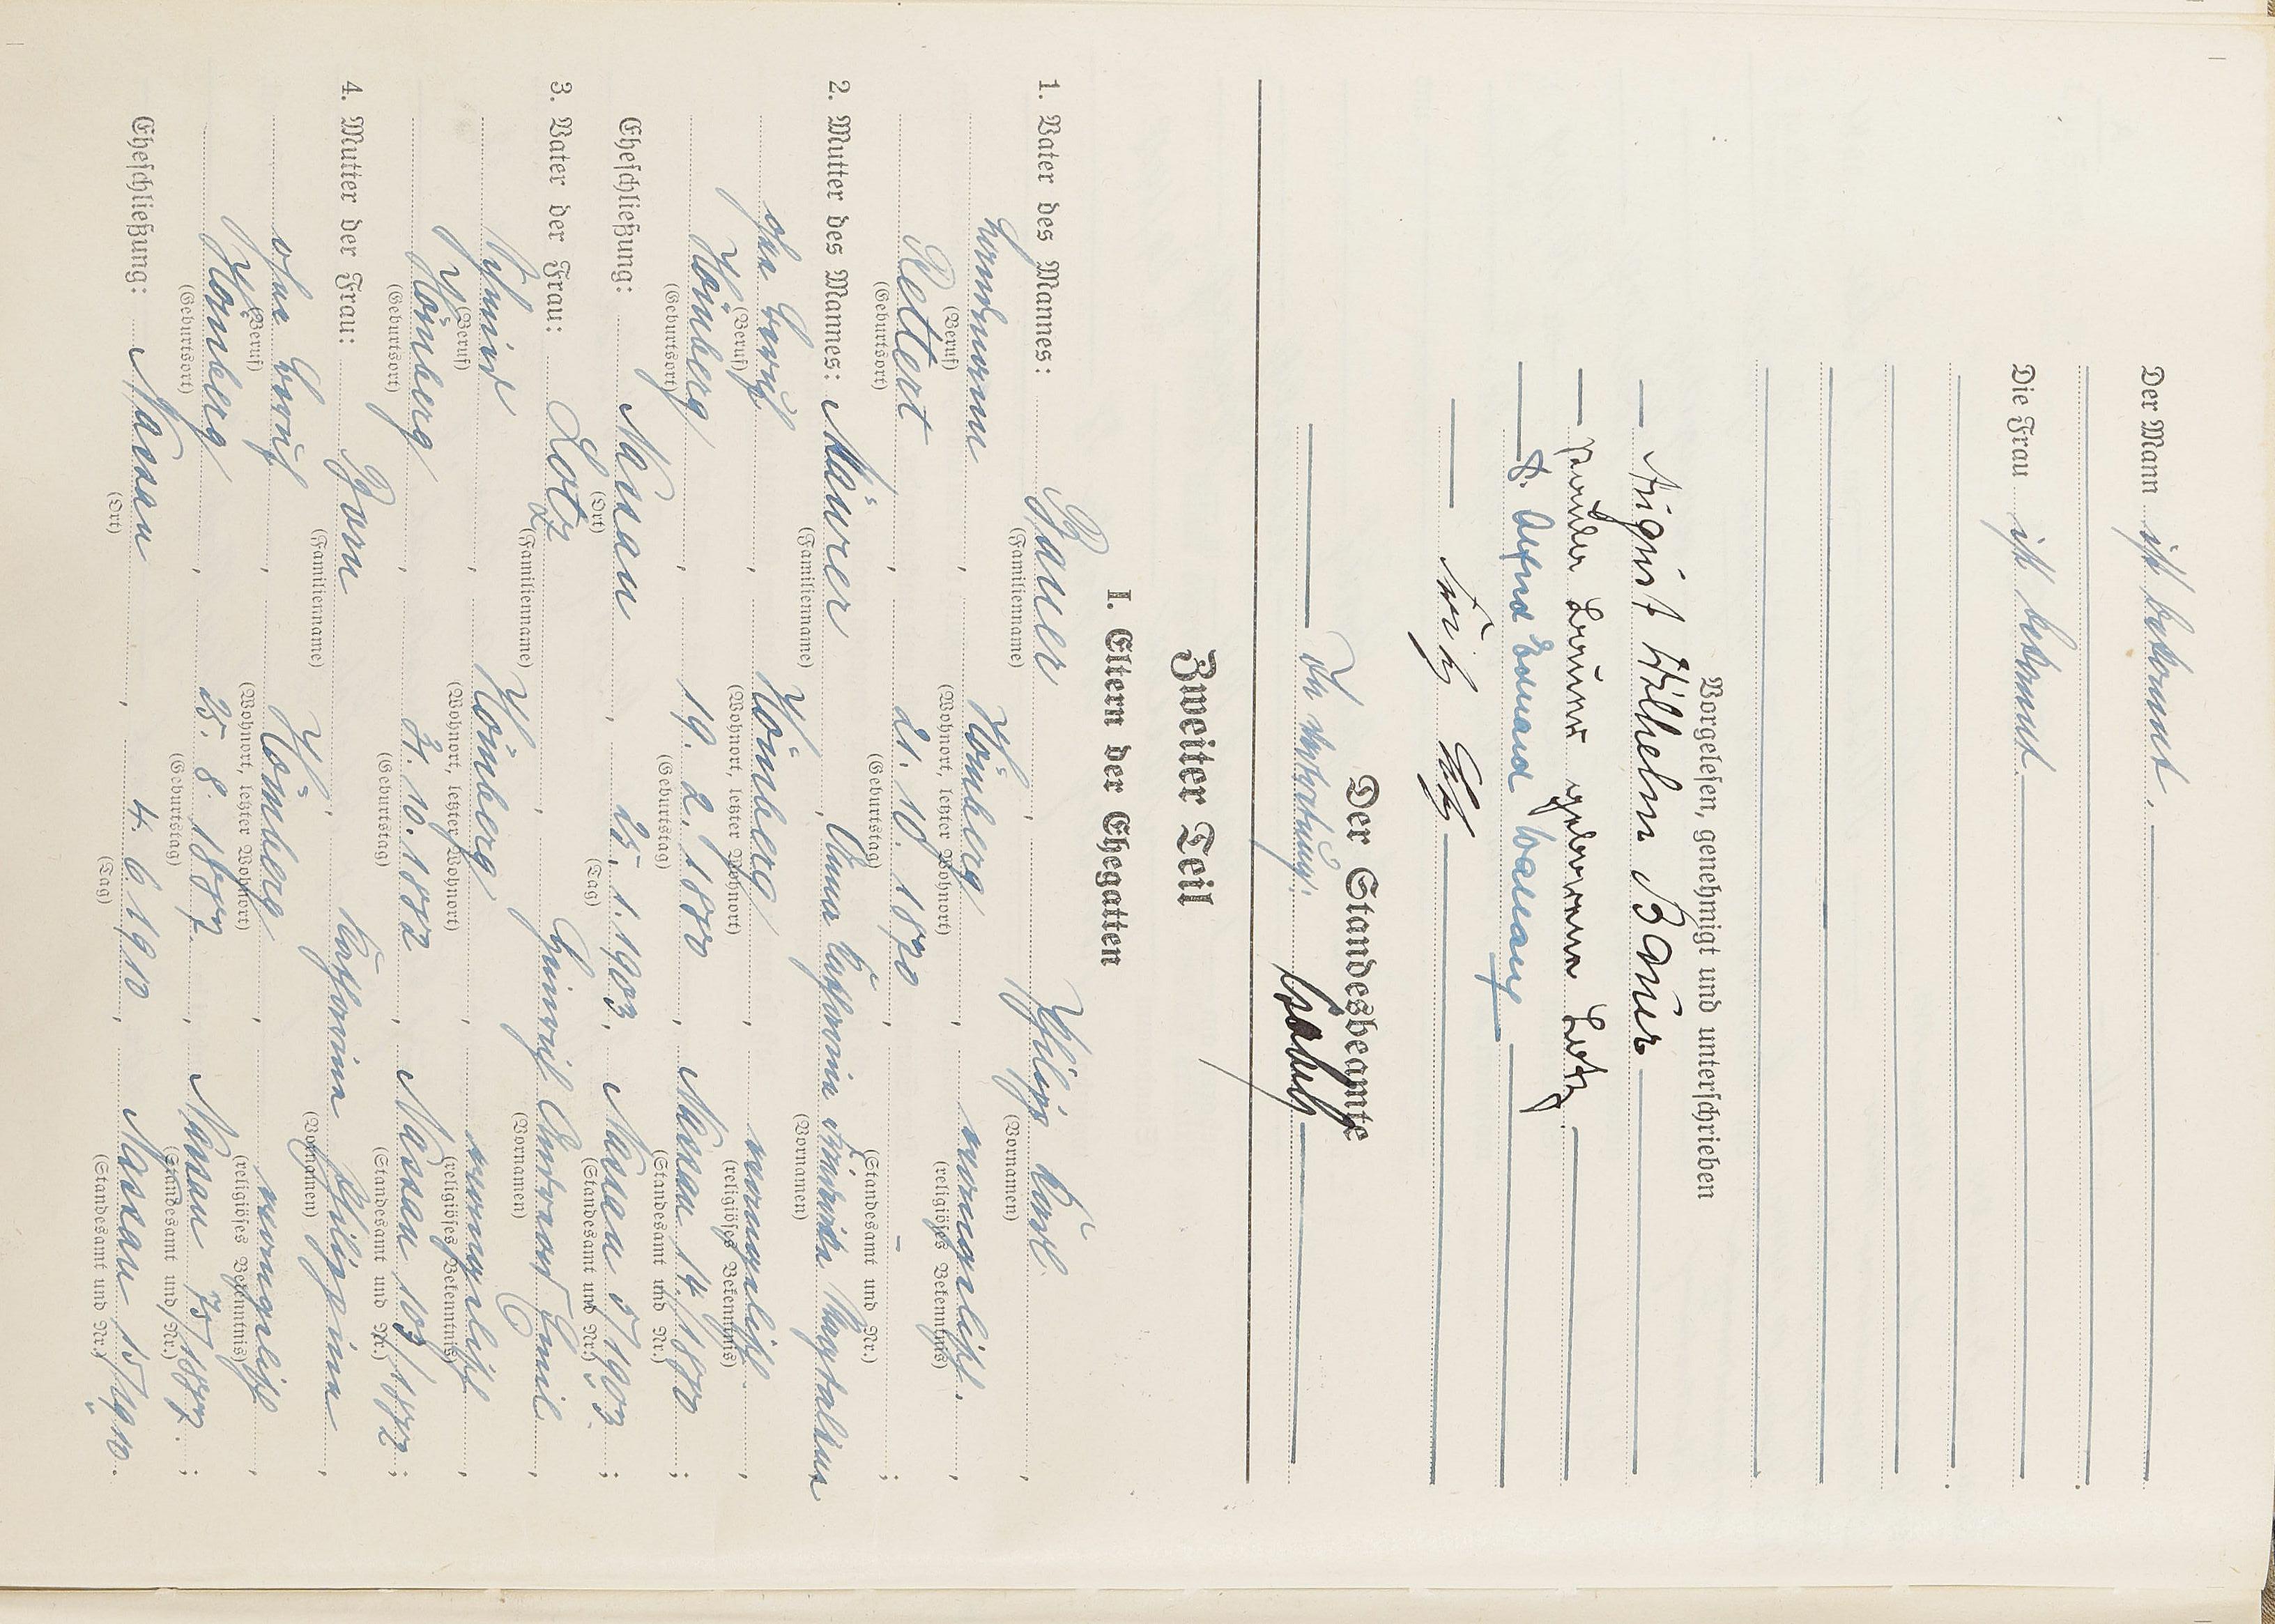 Der Mann ist bekannt.
Die Frau ist bekannt.
Vorgelesen, genehmigt und unterschrieben
August Wilhelm Bauer
Bauer geborenne Lotz
Der Standesbeamte
In Vertretung:
Zweiter Teil
I. Eltern der Ehegatten
1. Vater des Mannes: Bauer, Philipp Karl,
(Familienname) (Vornamen)
Landmann, Hömberg, evangelisch,
(Beruf) (Wohnort, letzter Wohnort) (religiöses Bekenntnis)
Dettert, 21. 10. 1870, – ;
(Geburtsort) (Geburtstag) (Standesamt und Nr.)
2. Mutter des Mannes: Mäurer, Anna Katharina Friederike
(Familienname) (Vornamen)
ohne Beruf, Hömberg, evangelisch,
(Beruf) (Wohnort, letzter Wohnort) (religiöses Bekenntnis)
Hömberg, 19. 2. 1880, Nassau 14/1880;
(Geburtsort) (Geburtstag) (Standesamt und Nr.)
Eheschließung: Nassau, 25. 1. 1903, Nassau 5/1903;
(Ort) (Tag) (Standesamt und Nr.)
3. Vater der Frau: Lotz, Heinrich Emil,
(Familienname) (Vornamen)
Hömberg, evangelisch,
(Beruf) (Wohnort, letzter Wohnort) (religiöses Bekenntnis)
Hömberg, 31. 10. 1882, Nassau 103/1882;
(Geburtsort) (Geburtstag) (Standesamt und Nr.)
4. Mutter der Frau: Born, Katharina Philippine,
(Familienname) (Vornamen)
ohne Beruf, Hömberg, evangelisch,
(Beruf) (Wohnort, letzter Wohnort) (religiöses Bekenntnis)
Hömberg, 25. 8. 1887, Nassau 75/1887.;
(Geburtsort) (Geburtstag) (Standesamt und Nr.)
Eheschließung: Nassau, 4. 6 1910, Nassau 15/1910.
(Ort) (Tag) (Standesamt und Nr.)